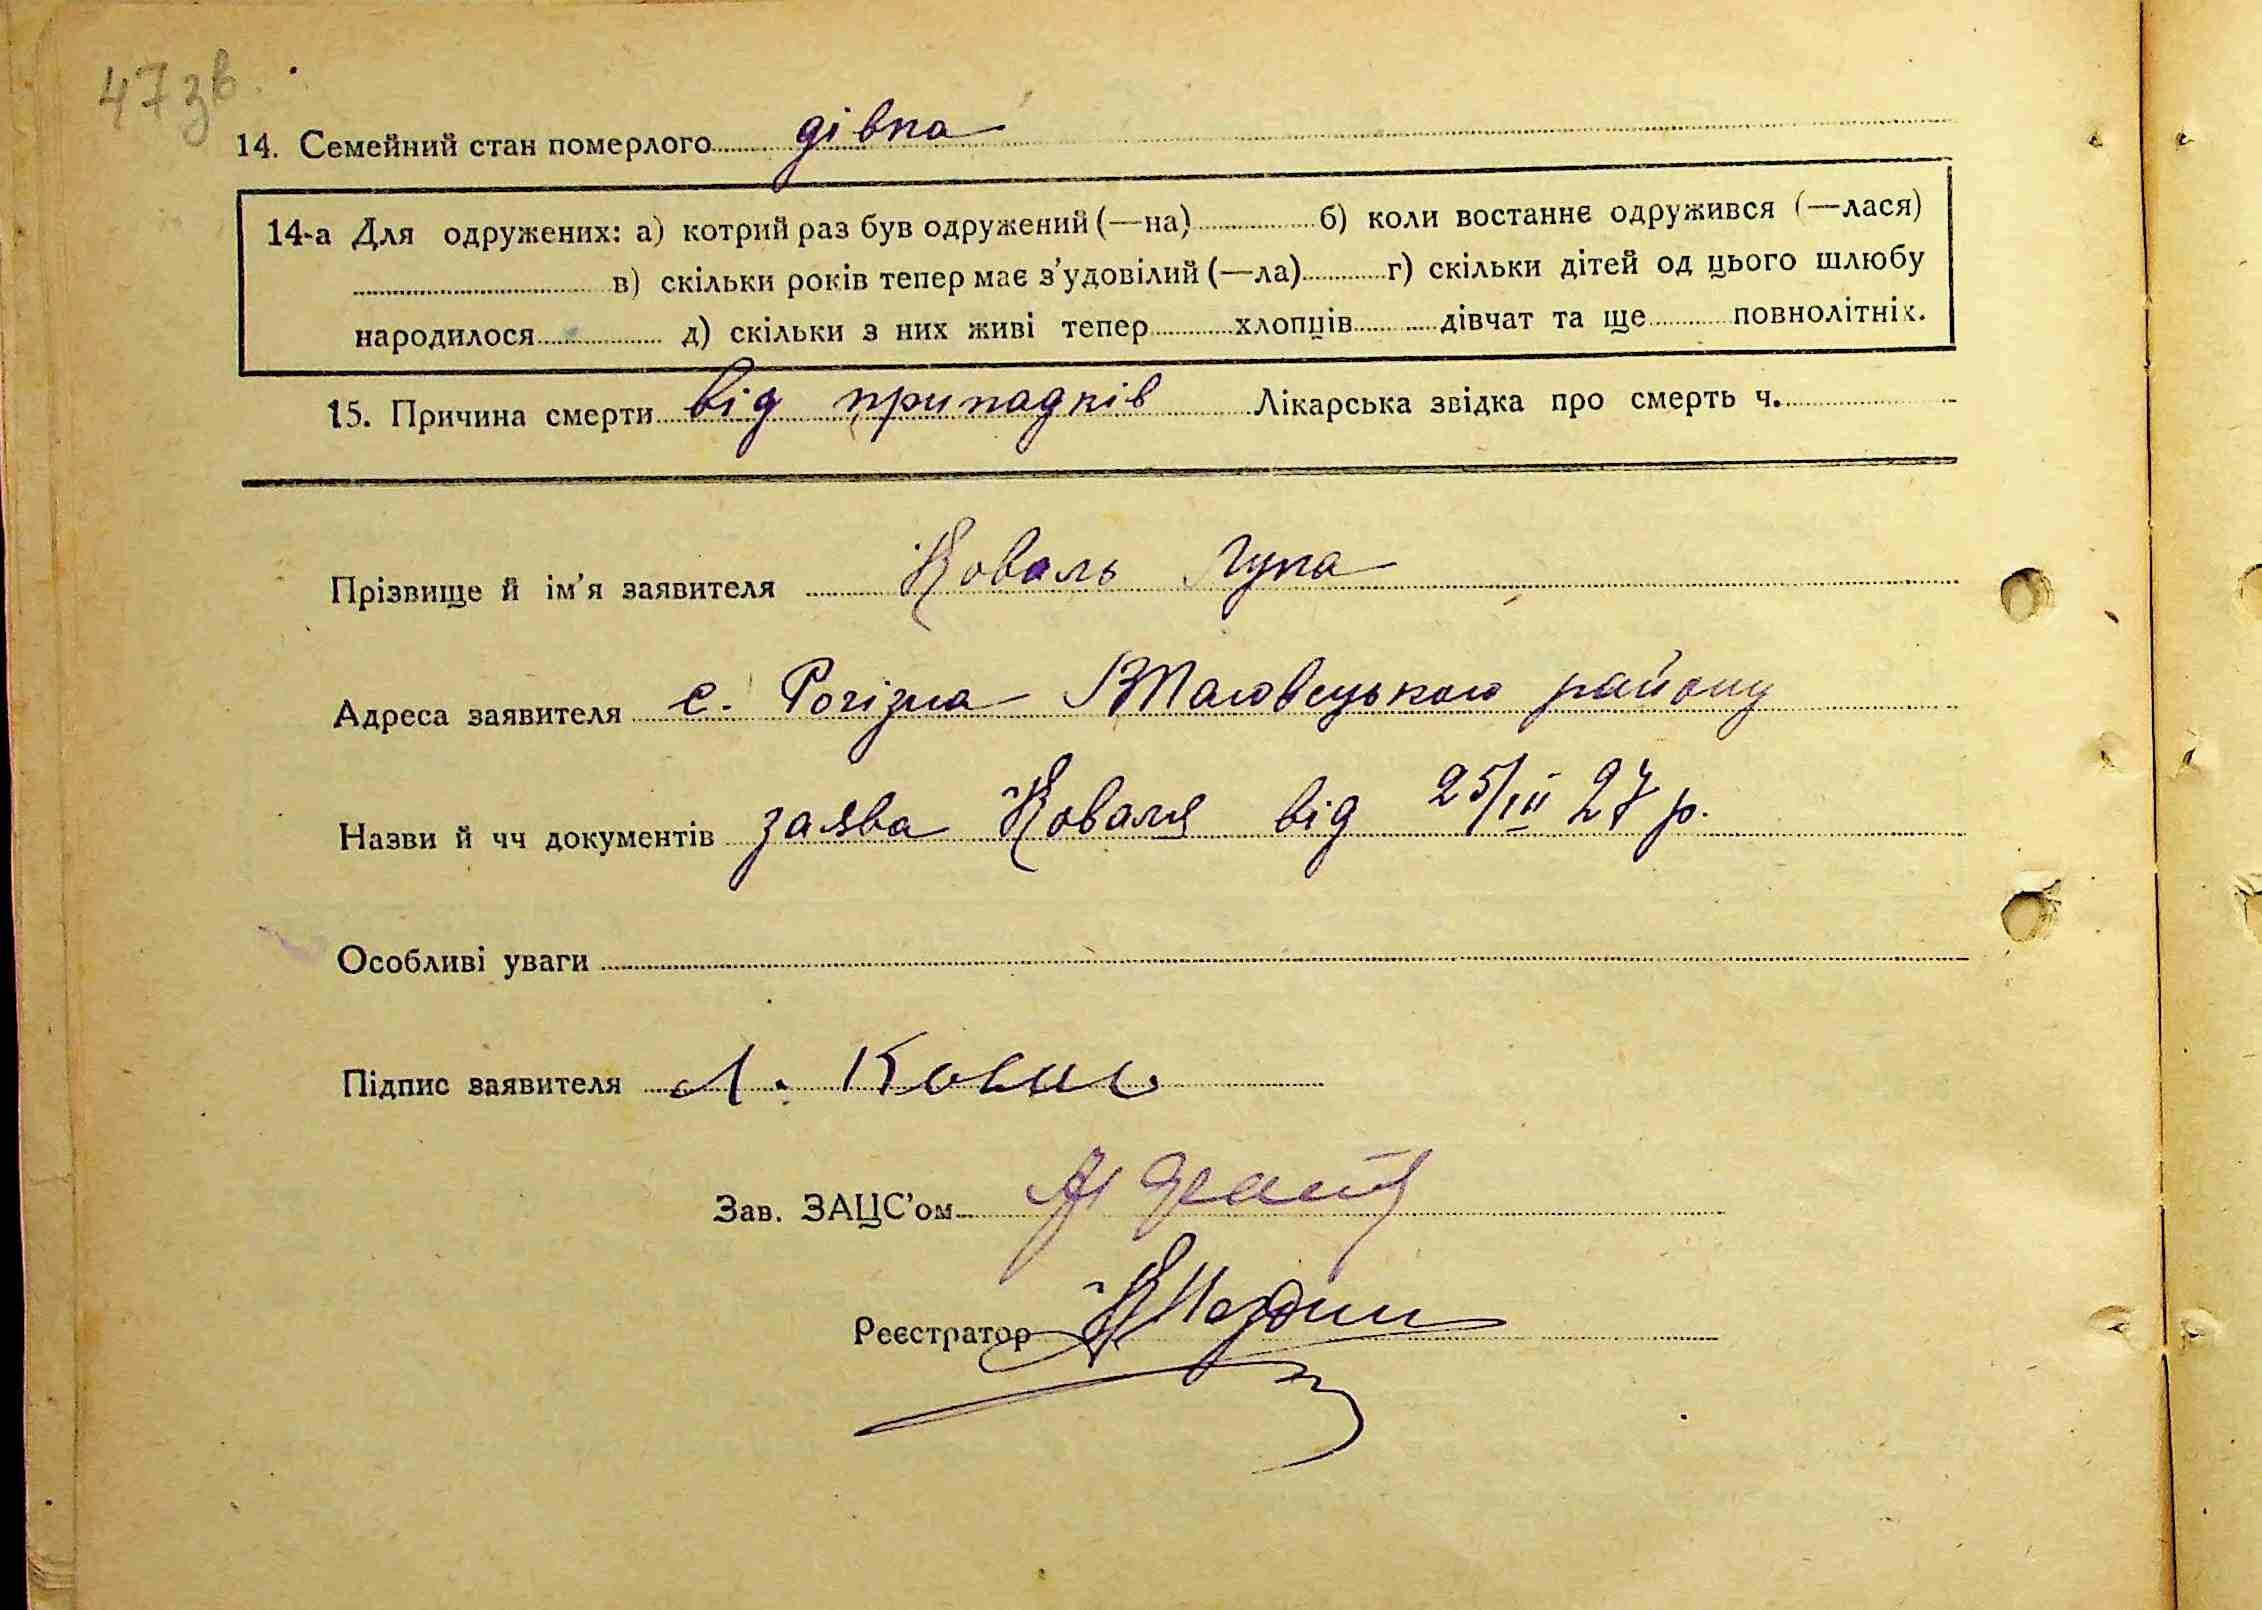 47 зв.
14. Семейний стан померлого дівка
14-а Для одружених: а) котрий раз був одружений (—на) б) коли востаннє одружився (—лася)
в) скільки років тепер має з'удовілий (—ла) г) скільки дітей од цього шлюбу
народилося д) скільки з них живі тепер хлопців дівчат та ще повнолітніх.
15. Причина смерти від припадків Лікарська звідка про смерть ч.
Прізвище й ім'я заявителя Коваль Лука
Адреса заявителя с. Рогізна району
Назви й чч документів заява Коваля від 25/III 27 р.
Особливі уваги
Підпис заявителя Л. Коваль
Зав. ЗАЦС'ом
Реєстратор